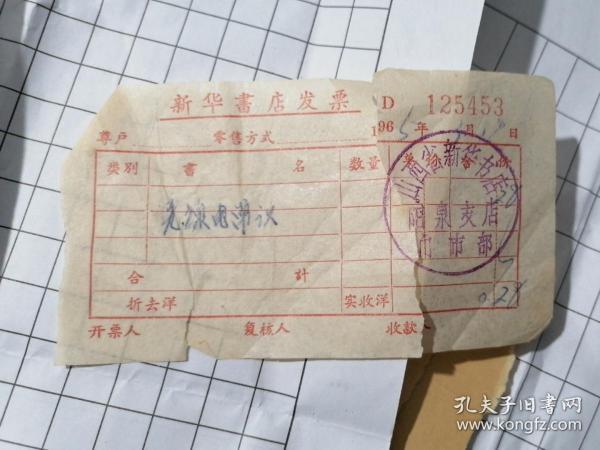 新华書店发票
D 125453
尊戶 零售方式 1965年 月 日
类別 書名 数量 单价 合价
无线电常识
合計
折去洋 实收洋 0.29
开票人 复核人 收款人
山西省新华书店
阳泉支店
门市部
孔夫子旧书网
www.kongfz.com